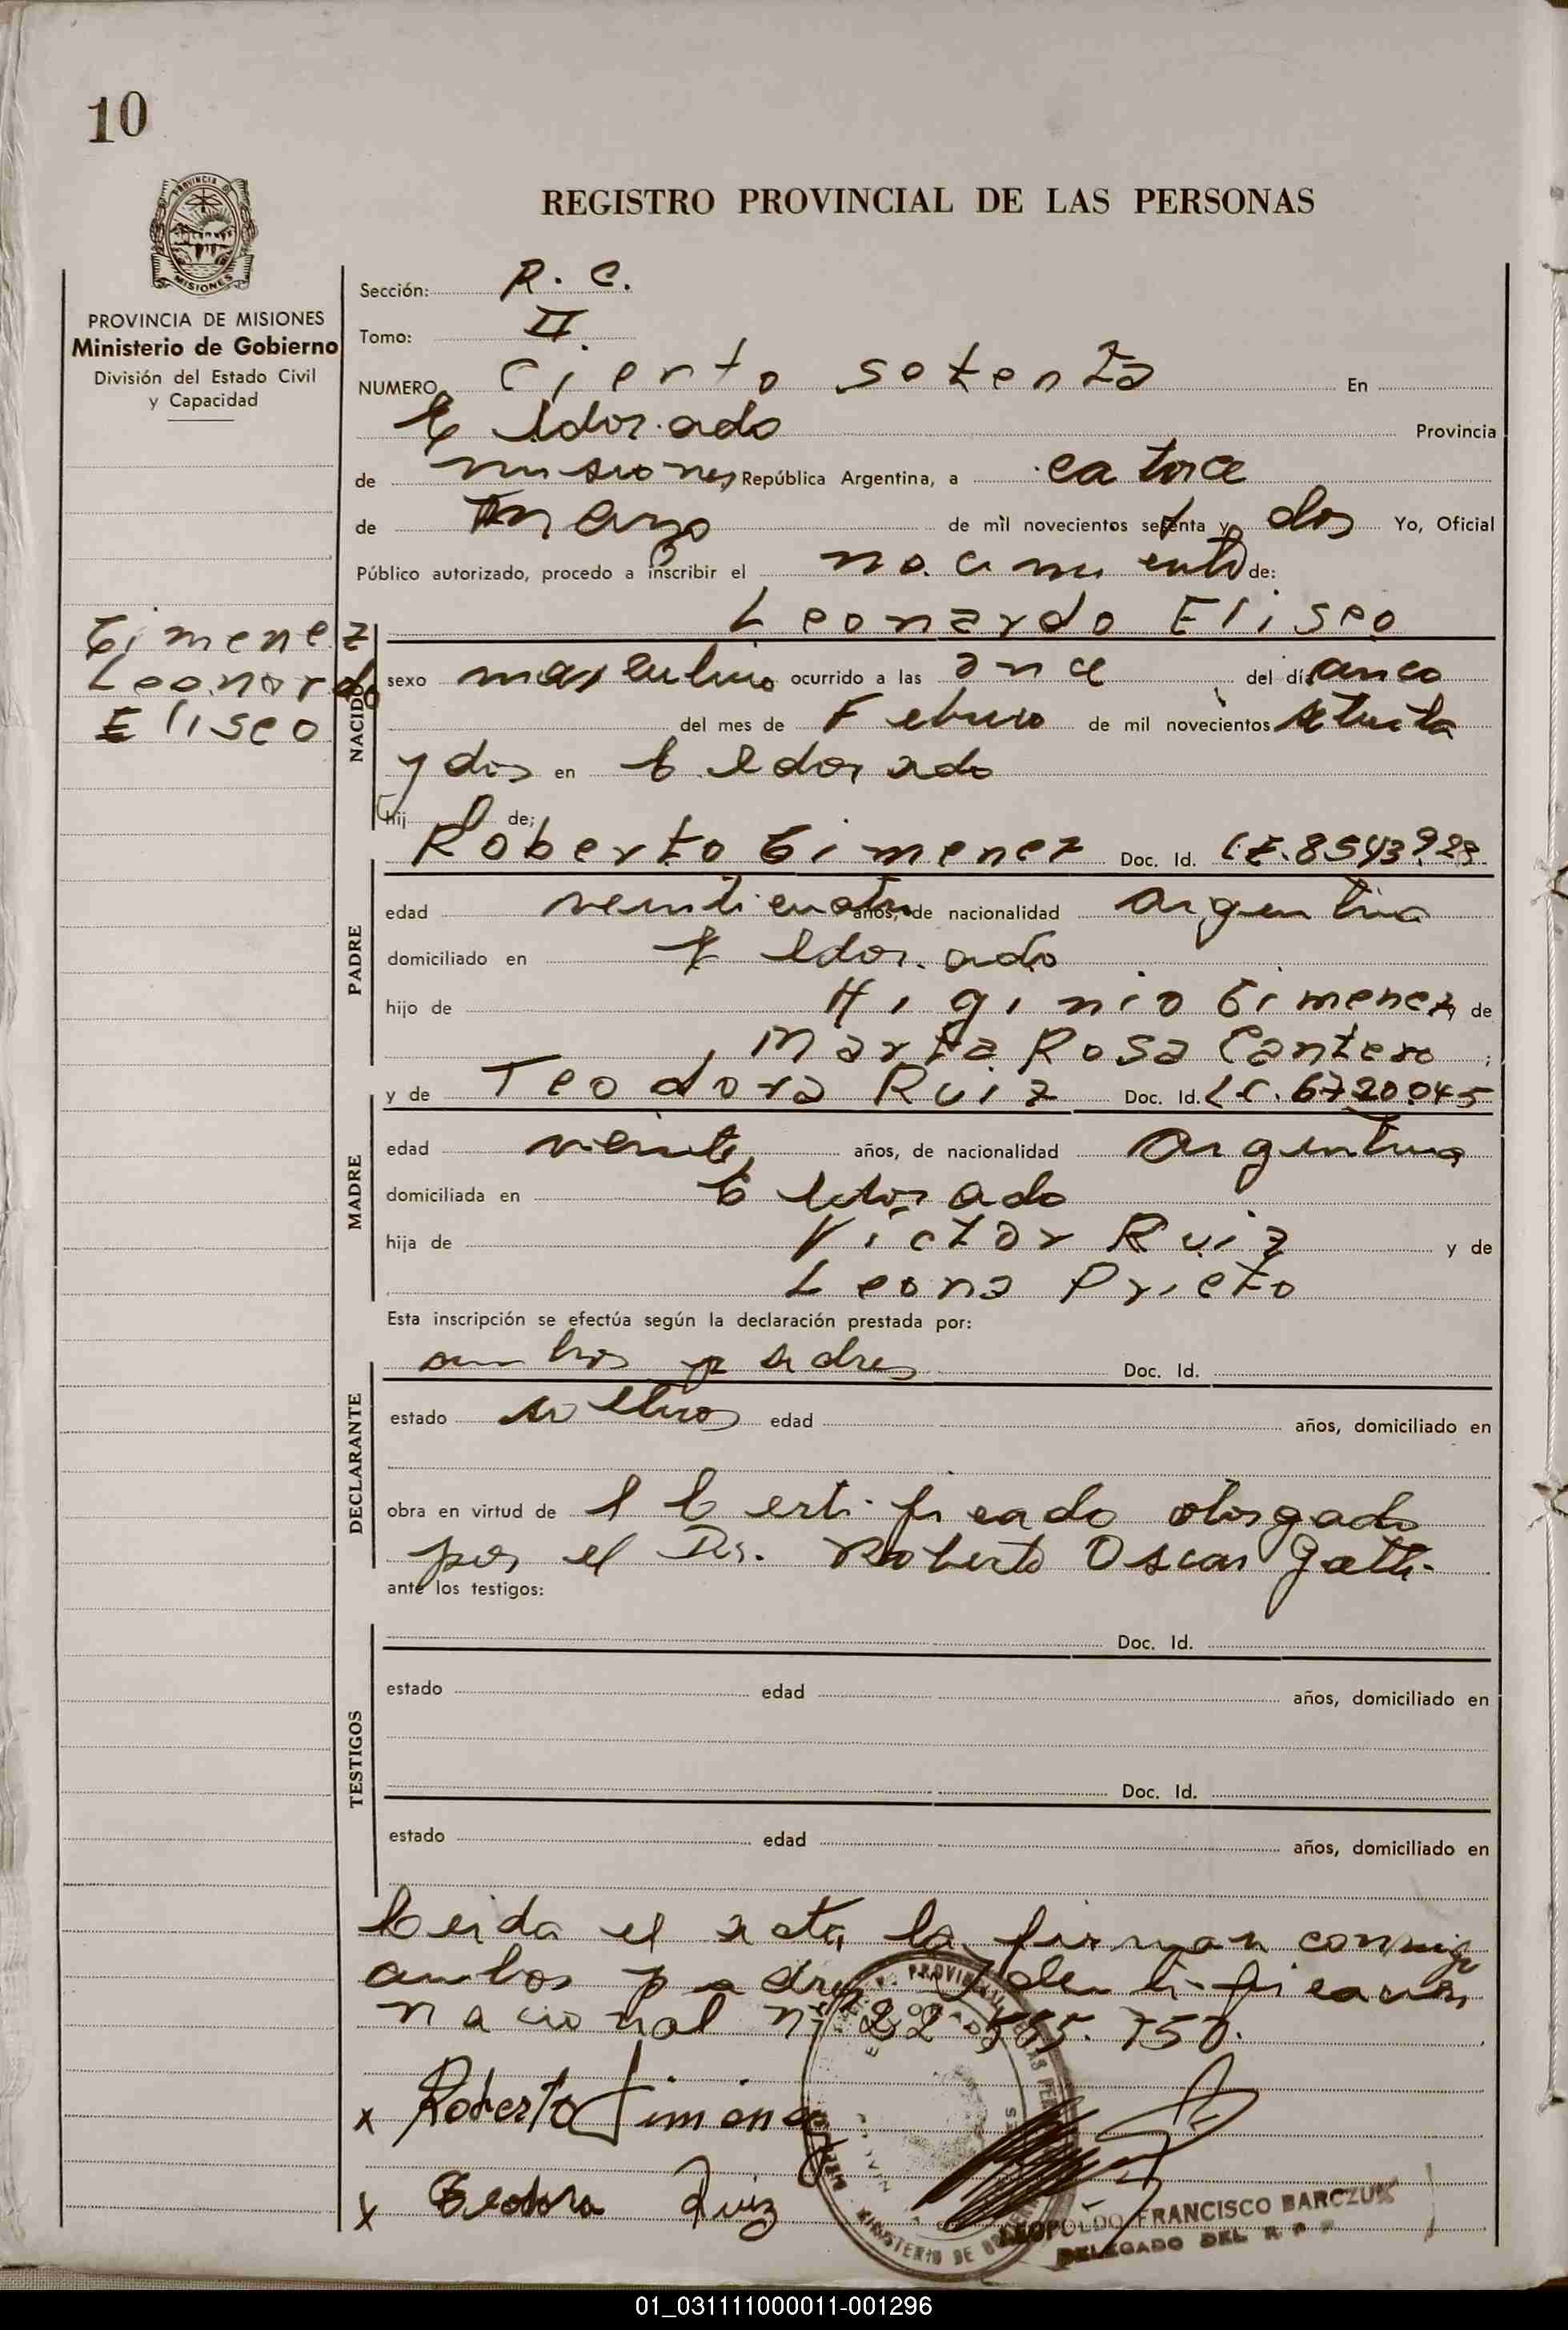 10
PROVINCIA DE MISIONES
REGISTRO PROVINCIAL DE LAS PERSONAS
PROVINCIA DE MISIONES
Ministerio de Gobierno
División del Estado Civil
y Capacidad
Gimenez
Leonardo
Eliseo
Sección: R. C.
Tomo: II
NUMERO Ciento setenta En
Eldorado Provincia
de misiones República Argentina, a catorce
de marzo de mil novecientos setenta y dos Yo, Oficial
Público autorizado, procedo a inscribir el nacimiento de:
Leonardo Eliseo
NACIDO
sexo masculino ocurrido a las once del día cinco
del mes de Febrero de mil novecientos setenta
y dos en Eldorado
hijo de;
Roberto Gimenez Doc. Id.
PADRE
edad veinticuatro años, de nacionalidad argentina
domiciliado en Eldorado
hijo de Higinio Gimenez, de
Marta Rosa Cantero;
y de Teodora Ruiz Doc. Id. LC. 6720.045
MADRE
edad veinte años, de nacionalidad argentina
domiciliada en Eldorado
hija de Victor Ruiz y de
Leona Prieto
Esta inscripción se efectúa según la declaración prestada por:
ambos padres Doc. Id.
DECLARANTE
estado solteros edad años, domiciliado en
obra en virtud de l Certificado otorgado
por el Dr. Roberto Oscar Gatti.
ante los testigos:
Doc. Id.
TESTIGOS
estado edad años, domiciliado en
Doc. Id.
estado edad años, domiciliado en
Leida el acta la firman conmigo
ambos padres Identificación
nacional nº 22. 750.
x Roberto Jimenez
x Teodora Ruiz
MINISTERIO DE
LEOPOLDO FRANCISCO BARCZUK
DELEGADO DEL R P P
01_031111000011-001296